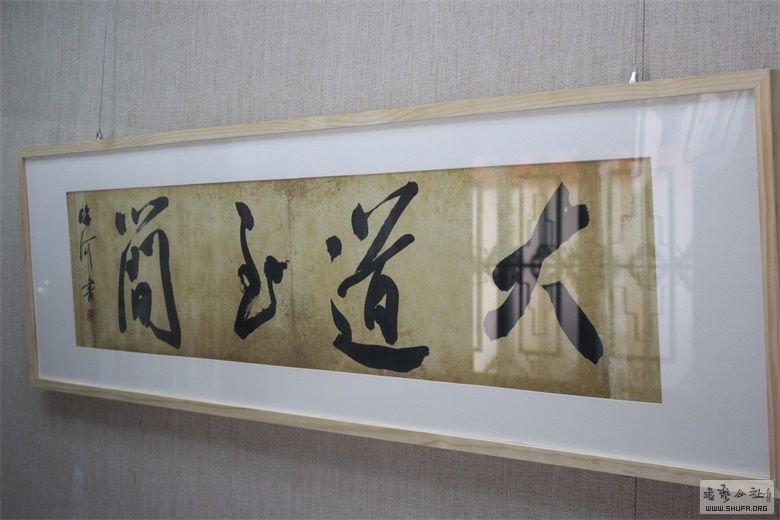 大道至简
书艺公社
WWW.SHUFA.ORG